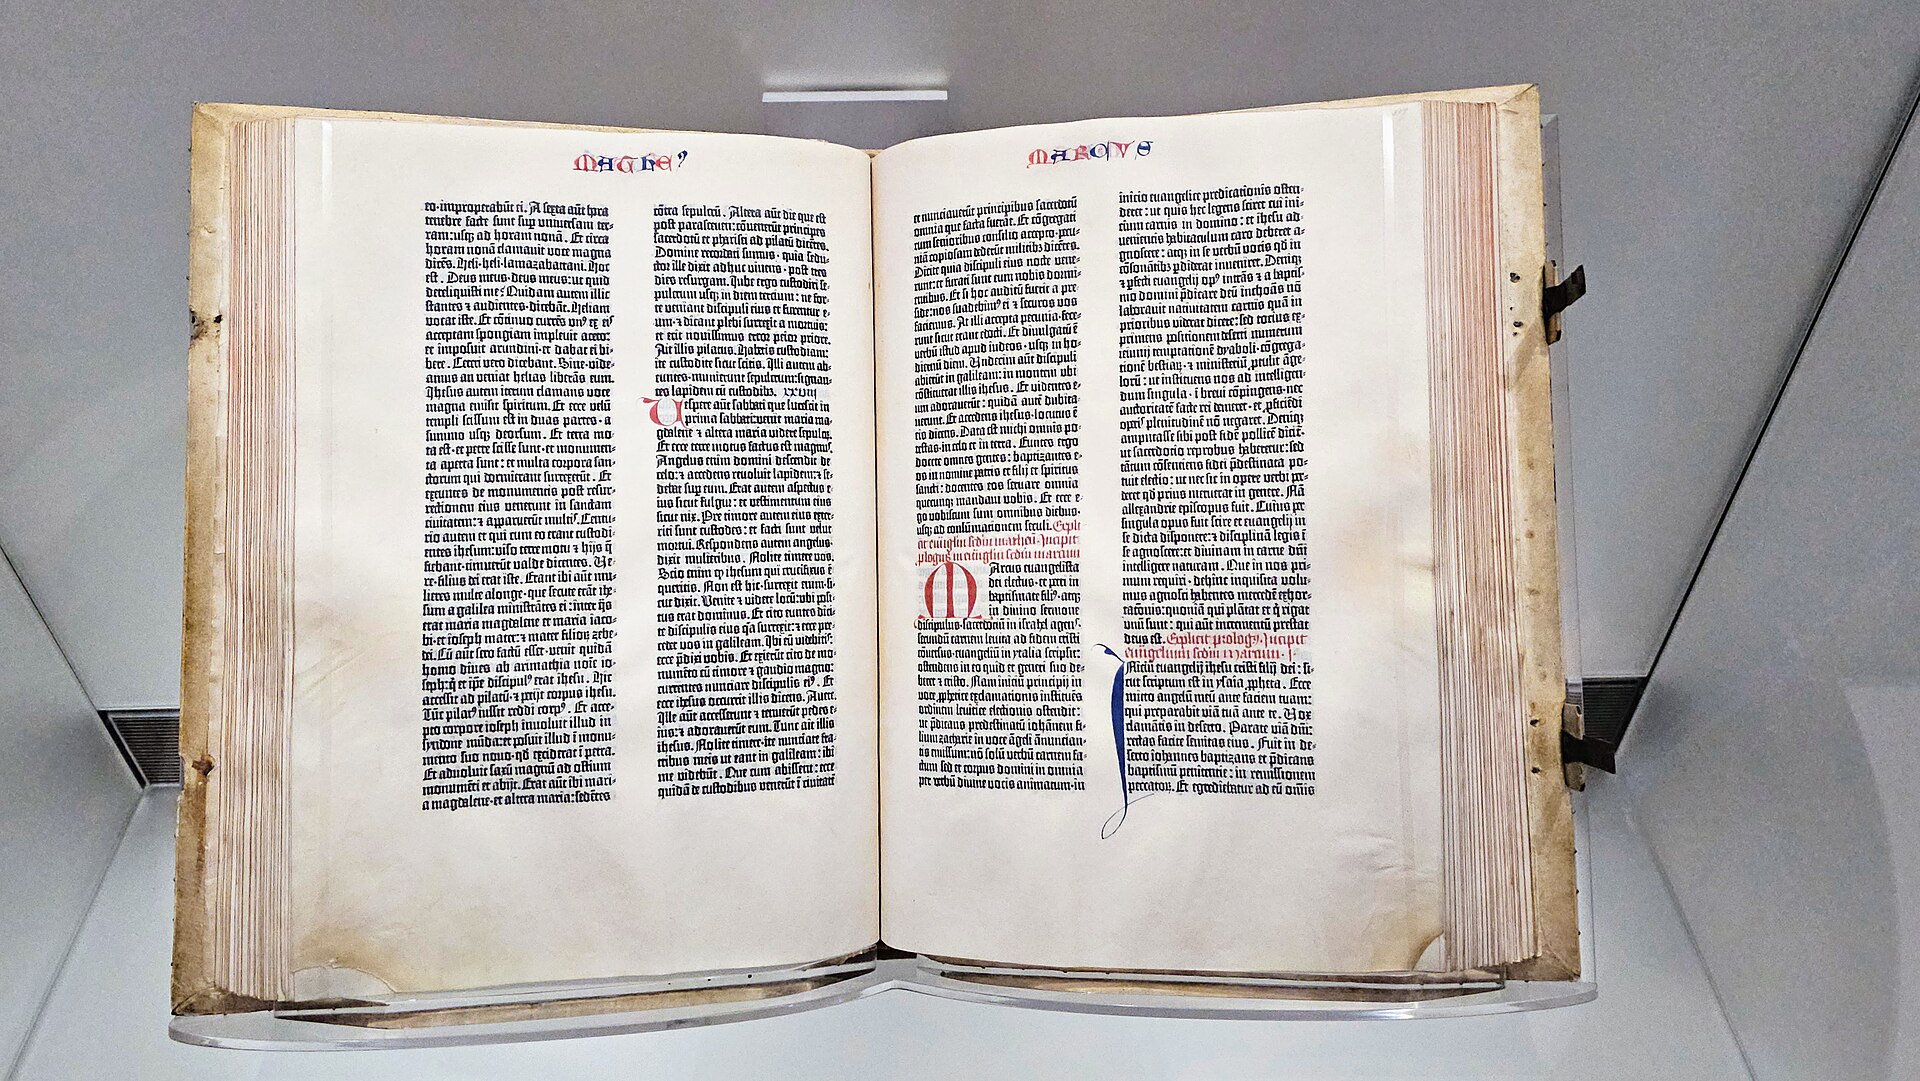 MATHEꝰ
eo·improperabāt ei. A sexta aūt hora
tenebre facte sunt sup universam ter-
ram:usq; ad horam nonā. Et circa
horam nonā clamavit voce magna
dicēs. Heli·heli·lamazabatani. Hoc
est. Deus meus·deus meus:ut quid
dereliquisti me? Quidam autem illic
stantes & audientes·dicebāt. Heliam
vocat iste. Et cōtinuo currēs unꝰ ex eis
acceptam spongiam implevit aceto:
et imposuit arundini·et dabat ei bi-
bere. Ceteri vero dicebant. Sine·vide-
amus an veniat helias liberās eum.
Ihesus autem iterum clamans voce
magna emisit spiritum. Et ecce velū
templi scissum est in duas partes·a
summo usq; deorsum. Et terra mo-
ta est·et petre scisse sunt·et monumen-
ta aperta sunt: et multa corpora san-
ctorum qui dormierant surrexerūt. Et
exeuntes de monumentis post resur-
rectionem eius venerunt in sanctam
civitatem:& apparuerūt multis. Centu-
rio autem et qui cum eo erant custodi-
entes ihesum:viso terre motu & hijs q̄
fiebant·timuerūt valde dicentes. Ve-
re·filius dei erat iste. Erant ibi aūt mu-
lieres multe alonge·que secute erāt ihe-
sum a galilea ministrātes ei: inter q̄s
erat maria magdalene et maria iaco-
bi·et ioseph mater:& mater filioꝝ zebe-
dei. Cū aūt sero factū esset·venit quidā
homo dives ab arimathia noīe io-
seph:q̄ et ip̄e discipulꝰ erat ihesu. Hic
accessit ad pilatū:& petijt corpus ihesu.
Tūc pilatꝰ iussit reddi corpꝰ. Et acce-
pto corpore ioseph involuit illud in
syndone mūda:et posuit illud ī monu-
mento suo novo·qd̄ exciderat ī petra.
Et advoluit saxū magnū ad ostium
monumēti et abijt. Erat aūt ibi mari-
a magdalene·et altera maria:sedētes
cōtra sepulcrū. Altera aūt die que est
post parasceuen:cōvenerūt principes
sacerdotū et pharisei ad pilatū dicētes.
Domine recordati sumus·quia sedu-
ctor ille dixit adhuc vivens·post tres
dies resurgam. Jube ergo custodiri se-
pulcrum usq; in diem tercium: ne for-
te veniant discipuli eius et furentur e-
um·& dicant plebi surrexit a mortuis:
et erit novissimus error peior priore.
Ait illis pilatus. Habetis custodiam:
ite custodite sicut scitis. Illi autem ab-
euntes·munierunt sepulcrum:signan-
tes lapidem cū custodibꝰ. XXVIII
Vespere aūt sabbati que lucescit in
prima sabbati:venit maria ma-
gdalene & altera maria videre sepulcꝝ.
Et ecce terre motus factus est magnꝰ.
Angelus enim domini descendit de
celo:& accedens revoluit lapidem:& se-
debat sup eum. Erat autem aspectus e-
ius sicut fulgur: et vestimentum eius
sicut nix. Pre timore autem eius exter-
riti sunt custodes: et facti sunt velut
mortui. Respondens autem angelus·
dixit mulieribus. Nolite timere vos.
Scio enim q̄ ihesum qui crucifixus ē
queritis. Non est hic·surrexit enim·si-
cut dixit. Venite & videte locū:ubi posi-
tus erat dominus. Et cito euntes dici-
te discipulis eius q̄a surrexit:& ecce pre-
cedet vos in galileam. Ibi eū videbitis:
ecce p̄dixi vobis. Et exierūt cito de mo-
numēto cū timore & gaudio magno:
currentes nunciare discipulis eiꝰ. Et
ecce ihesus occurrit illis dicens. Avete.
Ille aūt accesserunt & tenuerūt pedes e-
ius:& adoraverūt eum. Tunc ait illis
ihesus. Nolite timere·ite nunciate fra-
tribus meis ut eant in galileam: ibi
me videbūt. Que cum abissent: ecce
quidā de custodibus venerūt ī civitatē
MARCVS
et nunciaverūt principibus sacerdotū
omnia que facta fuerāt. Et cōgregati
cum senioribus consilio accepto·pecu-
niā copiosam dederūt militibꝰ dicētes.
Dicite quia discipuli eius nocte vene-
runt: et furati sunt eum nobis dormi-
entibus. Et si hoc auditū fuerit a pre-
side:nos suadebimꝰ ei & securos vos
faciemus. At illi accepta pecunia·fece-
runt sicut erant edocti. Et divulgatū ē
verbū istud apud iudeos·usq; in ho-
diernū diem. Undecim aūt discipuli
abierūt in galileam: in montem ubi
cōstituerat illis ihesus. Et videntes e-
um adoraverūt: quidā aūt dubita-
verunt. Et accedens ihesus·locutus ē
eis dicens. Data est michi omnis po-
testas·in celo et in terra. Euntes ergo
docete omnes gentes: baptizantes e-
os in nomine patris et filij et spiritus
sancti: docentes eos servare omnia
quecunq; mandavi vobis. Et ecce e-
go vobiscum sum omnibus diebus·
usq; ad consūmationem seculi. Explic
it euāgliū secdm matheū. Incipit
plogus in euāgliū secdm marcum
Marcus euangelista
dei electus·et petri in
baptismate filiꝰ·atq;
in divino sermone
discipulus·sacerdotiū in israhel agens·
secundū carnem levita ad fidem cristi
cōversus·euangeliū in ytalia scripsit:
ostendens in eo quid et generi suo de-
beret & cristo. Nam iniciū principij in
voce p̄phetice exclamationis instituēs
ordinem levitice electionis ostendit:
ut p̄dicans predestinatū iohānem fi-
lium zacharie in voce āgeli ānuncian-
tis emissum:nō solū verbū carnem fa-
ctum sed et corpus domini in omnia
per verbū divine vocis animatum·in
inicio euangelice predicationis osten-
deret: ut quis hec legens sciret cui ini-
cium carnis in domino: et ihesu ad-
venientis habitaculum caro deberet a-
gnoscere: atq; in se verbū vocis qd̄ in
cōsonātibꝰ p̄diderat inveniret. Deniq;
& p̄fecti euangelij opꝰ intrās & a baptis-
mo domini p̄dicare deū inchoās nō
laboravit nativitatem carnis quā in
prioribus viderat dicere: sed totius ex-
pressionē posicionem deserti numerum
ieiunij temptationē dyaboli·cōgrega-
tionē bestiaꝝ·& ministeriū p̄tulit āge-
loꝝ: ut instituens nos ad intelligen-
dum singula·ī brevi cōpingens·nec
auctoritatē facte rei demeret·et p̄ficiēdi
opi plenitudinē nō negaret. Deniq;
amputasse sibi post fidē pollicē dicit̄·
ut sacerdotio reprobus haberetur: sed
tātum cōsentiens fidei p̄destinata po-
tuit electio: ut nec sic in opere verbi per-
deret qd̄ prius meruerat in genere. Nā
alexandrie episcopus fuit. Cuius per
singula opus fuit scire et euangelij in
se dicta disponere: & disciplinā legis ī
se agnoscere:et divinam in carne dn̄i
intelligere naturam. Que in nos pri-
mum requiri·dehinc inquisita volu-
mus agnosci habentes mercedē exhor-
tacōnis: quoniā qui plātat et q̄ rigat
unū sunt: qui aūt incrementū prestat
deus est. Explicit prologꝰ. Incipit
euāgelium secdm Marcum. I
Iniciū euangelij ihesu cristi filij dei: si-
cut scriptum est in ysaia p̄pheta. Ecce
mitto angelū meū ante faciem tuam:
qui preparabit viā tuā ante te. Vox
clamātis in deserto. Parate viā dn̄i:
rectas facite semitas eius. Fuit in de-
serto iohannes baptizans et p̄dicans
baptismū penitentie: in remissionem
peccatoꝝ. Et egrediebatur ad eū om̄is